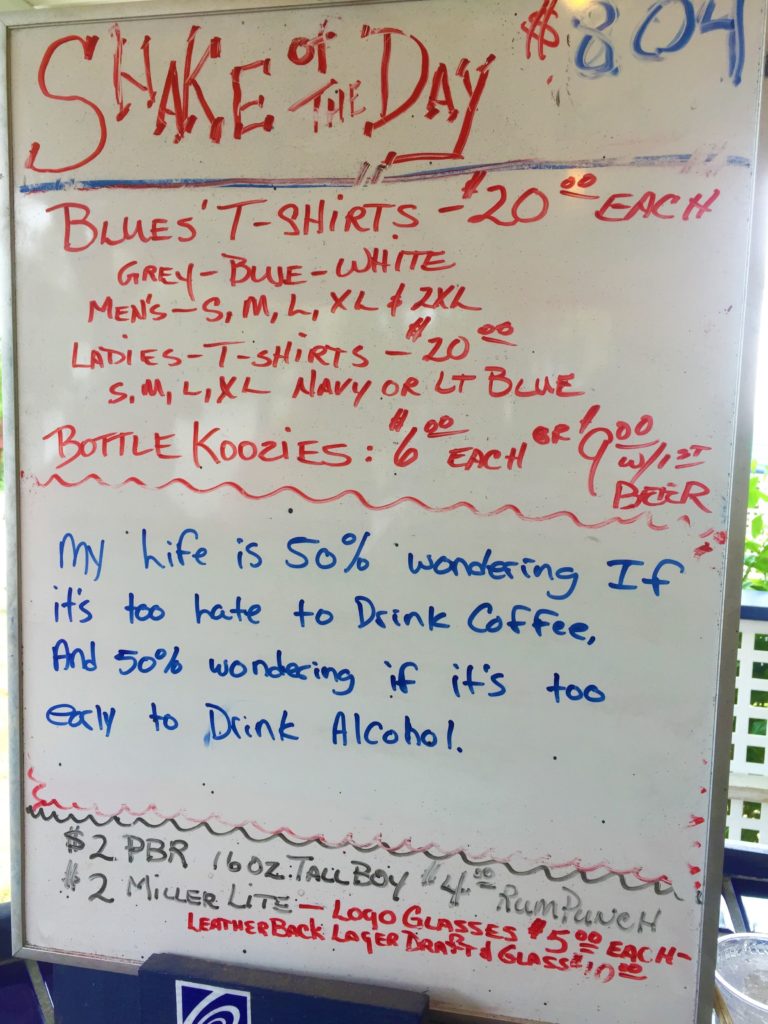 SHAKE OF THE DAY $8.04
BLUES' T-SHIRTS - $20.00 EACH
GREY - BLUE - WHITE
MEN'S - S, M, L, XL & 2XL
LADIES - T-SHIRTS - $20.00
S, M, L, XL NAVY OR LT BLUE
BOTTLE KOOZIES: $6.00 EACH OR $9.00 W/1ST BEER
My Life is 50% wondering If
it's too Late to Drink Coffee,
And 50% wondering if it's too
early to Drink Alcohol.
$2 PBR 16OZ. TALL BOY $4.00 RUM PUNCH
$2 MILLER LITE - LOGO GLASSES $5.00 EACH -
LEATHERBACK LAGER DRAFT & GLASS $10.00